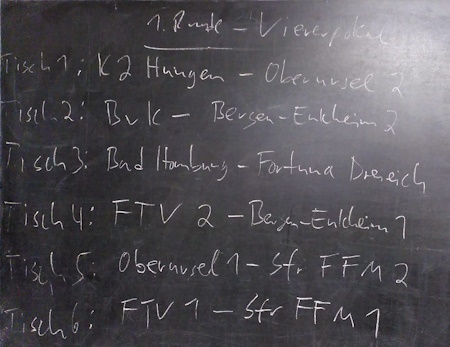 1. Runde - Viererpokal
Tisch 1: K2 Hungen - Oberursel 2
Tisch 2: BvK - Bergen-Enkheim 2
Tisch 3: Bad Homburg - Fortuna Dreieich
Tisch 4: FTV 2 - Bergen-Enkheim 1
Tisch 5: Oberursel 1 - Sfr FFM 2
Tisch 6: FTV 1 - Sfr FFM 1